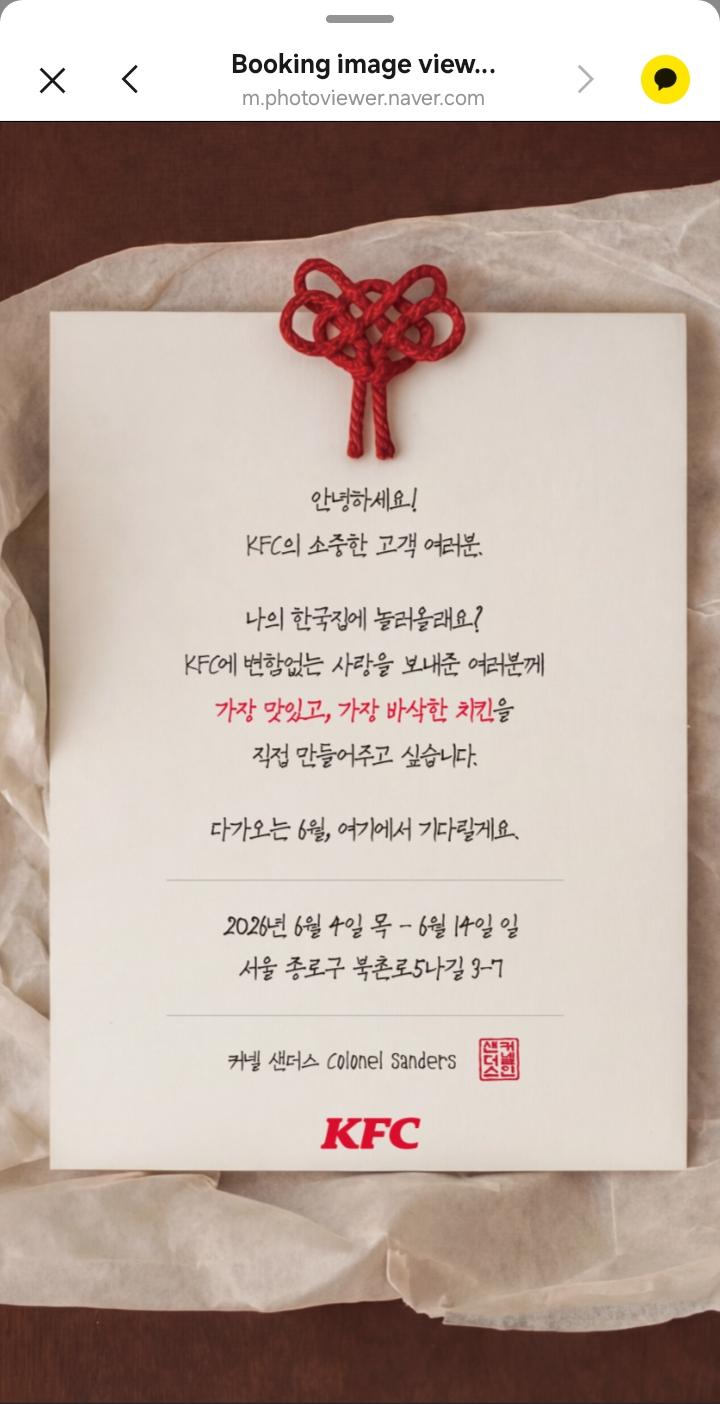 Booking image view...
m.photoviewer.naver.com
안녕하세요!
KFC의 소중한 고객 여러분.
나의 한국집에 놀러올래요?
KFC에 변함없는 사랑을 보내준 여러분께
가장 맛있고, 가장 바삭한 치킨을
직접 만들어주고 싶습니다.
다가오는 6월, 여기에서 기다릴게요.
2026년 6월 4일 목 - 6월 14일 일
서울 종로구 북촌로5나길 3-7
커넬 샌더스 Colonel Sanders
커넬인
샌더스
KFC